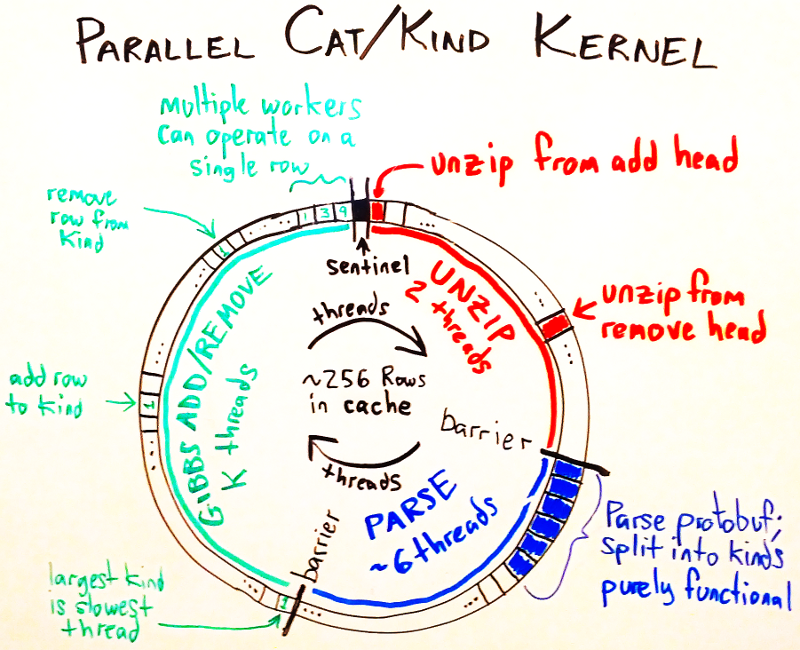 PARALLEL CAT/KIND KERNEL
multiple workers
can operate on a
single row
unzip from add head
remove
row from
kind
1 3 9
...
...
1
sentinel
UNZIP
2 threads
threads
unzip from
remove head
GIBBS ADD/REMOVE
K threads
~256 Rows
in cache
add row
to kind
1
barrier
threads
PARSE
~6 threads
barrier
Parse protobuf;
split into kinds
purely functional
largest kind
is slowest
thread
1